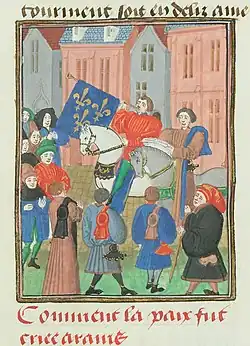 tourment soit en deliz ame
Comment la paix fut
criee a rains